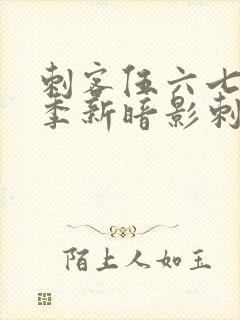 刺客伍六七
季新暗影刺
陌上人如玉